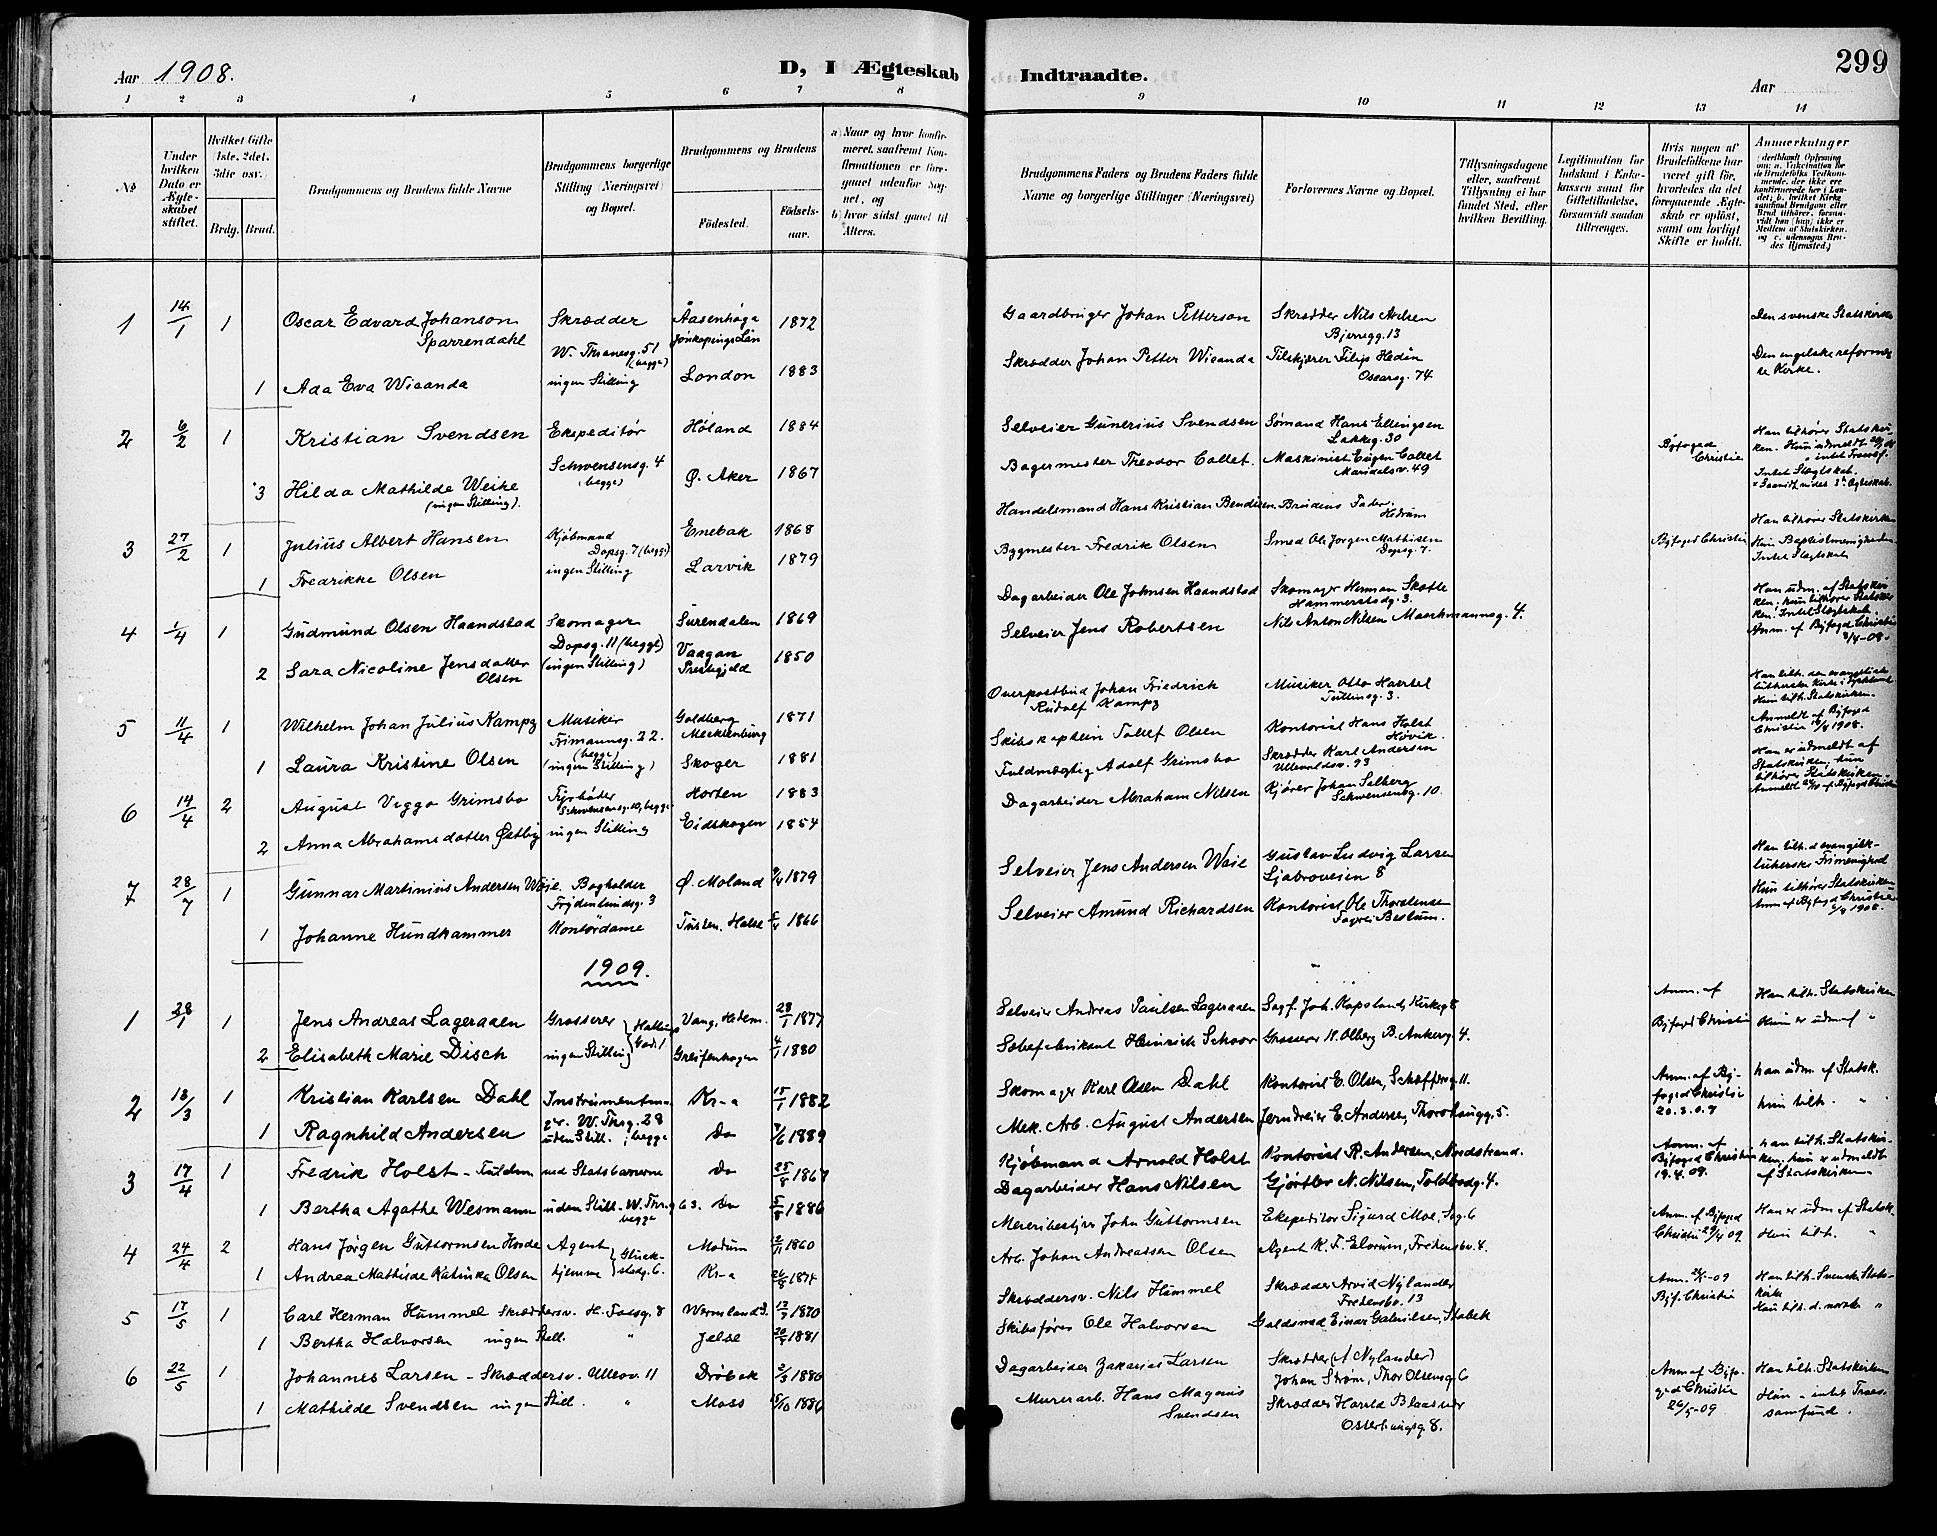 Aar 1908.
D, I Ægteskab Indtraadte.
299
Aar
1 2 3 4 5 6 7 8 9 10 11 12 13 14
No
Under hvilken Dato er Ægteskabet stiftet.
Hvilket Gifte (1ste, 2det, 3die osv.)
Brdg. Brud.
Brudgommens og Brudens fulde Navne
Brudgommens borgerlige Stilling (Næringsvei) og Bopæl.
Brudgommens og Brudens
Födested.
Födsels-aar.
a) Naar og hvor konfirmeret, saafremt Konfirmationen er foregaaet udenfor Sognet, og
b) hvor sidst gaaet til Alters.
Brudgommens Faders og Brudens Faders fulde Navne og borgerlige Stillinger (Næringsvei)
Forlovernes Navne og Bopæl.
Tillysningsdagene eller, saafremt Tillysning ei har fundet Sted, efter hvilken Bevilling.
Legitimation for Indskud i Enkekassen samt for Giftetilladelse, forsaavidt saadan tiltrænges.
Hvis nogen af Brudefolkene har været gift för, hvorledes da det foregaaende Ægteskab er oplöst, samt om lovligt Skifte er holdt.
Anmærkninger
1 14/1 1 Oscar Edvard Johanson Sparrendahl Skrædder Aasenhöga Jönköpings Län 1872 Gaardbruger Johan Petterson Skrædder Nils Axelsen Bjerregg. 13 Den svenske Statskirke
W. Thranesg. 51 (begge)
1 Ada Eva Wicanda ingen Stilling London 1883 Skrædder Johan Petter Wicanda Tilskjærer Filip Hedén Oscarsg. 74 Den engelske reformerte Kirke.
2 6/2 1 Kristian Svendsen Ekspeditør Høland 1884 Selveier Gunerius Svendsen Sømand Hans Ellingsen Lakkeg. 30 Byfoged Christie Han tilhører Statskirken.
Schwensensg. 4 (begge)
3 Hilda Mathilde Weike (ingen Stilling). Ø. Aker 1867 Bagermester Theodor Collet. Maskinist Eugen Collet Maridalsv. 49 Intet Slægtskab.
3 27/2 1 Julius Albert Hansen Kjøbmand Dopsg. 7 (begge) Enebak 1868 Handelsmand Hans Kristian Bendixen Brudens Fader Hedrum Byfoged Christie Han tilhører Statskirken
1 Fredrikke Olsen ingen Stilling Larvik 1879 Bygmester Fredrik Olsen Smed Ole Jørgen Mathisen Dopsg. 7. Hun Baptistmenigheden. Intet Slægtskab
4 1/4 1 Gudmund Olsen Haandstad Skomager Surendalen 1869 Dagarbeider Ole Johnsen Haandstad Skomager Herman Skatle Hammerstadg. 3. Han udm. af Statskirken. hun tilhører Statskirken. Intet Slægtskab.
Dopsg. 11 (begge)
2 Sara Nicoline Jensdatter Olsen (ingen Stilling) Vaagan Prestegjeld 1850 Selveier Jens Robertsen Nils Anton Nilsen Maschmannsg. 4. Anm. af Byfogd Christie 3/4-08.
5 11/4 1 Wilhelm Johan Julius Kampz Musiker Goldberg Mecklenburg 1871 Overpostbud Johan Friedrich Rudolf Kampz Musiker Otto Haertel Tullinsg. 3.
Frimannsg. 22. (begge)
1 Laura Kristine Olsen (ingen Stilling) Skoger 1881 Skibskaptein Tollef Olsen Kontorist Hans Holst Høvik. Hun tilh. Statskirken. Anmeldt af Byfoged Christie 1908.
6 14/4 2 August Viggo Grimsbo Fyrbøder Schwensensg. 10, begge Horten 1883 Fuldmægtig Adolf Grimsbo Skrædder Karl Andersen Ullevoldsv. 93 Han er udmeldt af Statskirken, hun tilhører Statskirken
2 Anna Abrahamsdatter Østby ingen Stilling Eidskogen 1854 Dagarbeider Abraham Nilsen Kjører Johan Selberg Schwensensg. 10.
7 28/7 1 Gunnar Martinius Andersen Woie. Bogholder Frydenlundsg. 3 Ø. Moland 1879 Selveier Jens Andersen Woie Gustav Ludvig Larsen Ljabroveien 8 Han tilh. d. evangelisk-lutherske Frimenighed
1 Johanne Hundkammer Kontordame Tusten, Halse 1866 Selveier Amund Richardsen Kontorist Ole Thorstensen Fagrei Bestum. Hun tilhører Statskirken. Anm. af Byfogd Christie 1908.
1909.
1 28/1 1 Jens Andreas Lageraaen Grosserer Vang, Hedm. 28/1 1877 Selveier Andreas Paulsen Lageraaen Sagf. Joh. Kopsland, Kirkeg 8 Anm. af Han tilh. Statskirken
2 Elisabeth Marie Disch ingen Stilling Greifenhagen 4/1 1880 Heinrich Schoor Grosserer H. Olberg B. Ankersg. 4. Byfogd Christie Hun er udm. af "
2 13/3 1 Kristian Karlsen Dahl Instrumentmager. W. Thrsg. 28 Kr-a 15/1 1882 Skomager Karl Olsen Dahl Kontorist E. Olsen, Schæffersg. 11. Anm. af Byfoged Christie han udm. af Statsk.
1 Ragnhild Andersen uden Still. begge Do 1889 Mek. Arb. August Andersen Jerndreier E. Andersen, Thorshaugg. 5. hun tilh. "
3 17/4 1 Fredrik Holst - Fuldm. ved Statsbanerne Do 25/8 1867 Kjøbmand Arnold Holst Kontorist R. Andersen, Nordstrand. Anm. af Byfoged Christie 19.4.09. han tilh. Statskirken. hun er udmeldt af Statskirken
1 Bertha Agathe Wesmann uden Still. - W. Thr.g 63. begge Do 5/8 1886 Dagarbeider Hans Nilsen Gjørtler N. Nilsen, Toldbodg. 4.
4 24/4 2 Hans Jørgen Guttormsen Hovde Agent Glückstadg. 6. Modum 2/11 1860 Meieribestyr John Guttormsen Ekspeditør Sigurd Moe, Sog. 6 Anm. af Byfoged Christie Han er udm. af Statsk.
1 Andrea Mathilde Katinka Olsen hjemme Kr-a 26/8 1874 Arb. Johan Andreassen Olsen Agent K. F. Elvrum, Fredensbv. 8. Hun tilh. "
5 17/5 1 Carl Herman Hummel Skræddersv. H. Tatsg. 8 Wermland S. 1880 Skræddersv. Nils Hummel Skrædder Arvid Nylander Fredensbv. 13 Anm. Han tilh. Svensk Statskirke
1 Bertha Halvorsen ingen Still. " Jelse 1881 Skibsfører Ole Halvorsen Guldsmed Einar Gabrielsen, Stabek Byf. Christie Hun tilh. d. norske "
6 22/5 1 Johannes Larsen - Skræddersv. Ullevv. 11 Drøbak 2/3 1880 Dagarbeider Zakarias Larsen Skrædder (A Nylander) Johan Strøm, Thor Olsensg. 6 Anm af Byfoged Christie 26/5-09 Han tilh. Statskirken
1 Mathilde Svendsen ingen Still. " Moss 15/10 1886 Murerarb. Hans Magnus Svendsen Skrædder Harald Blaasver Osterhausg. 8. Hun - intet Trossamfund.